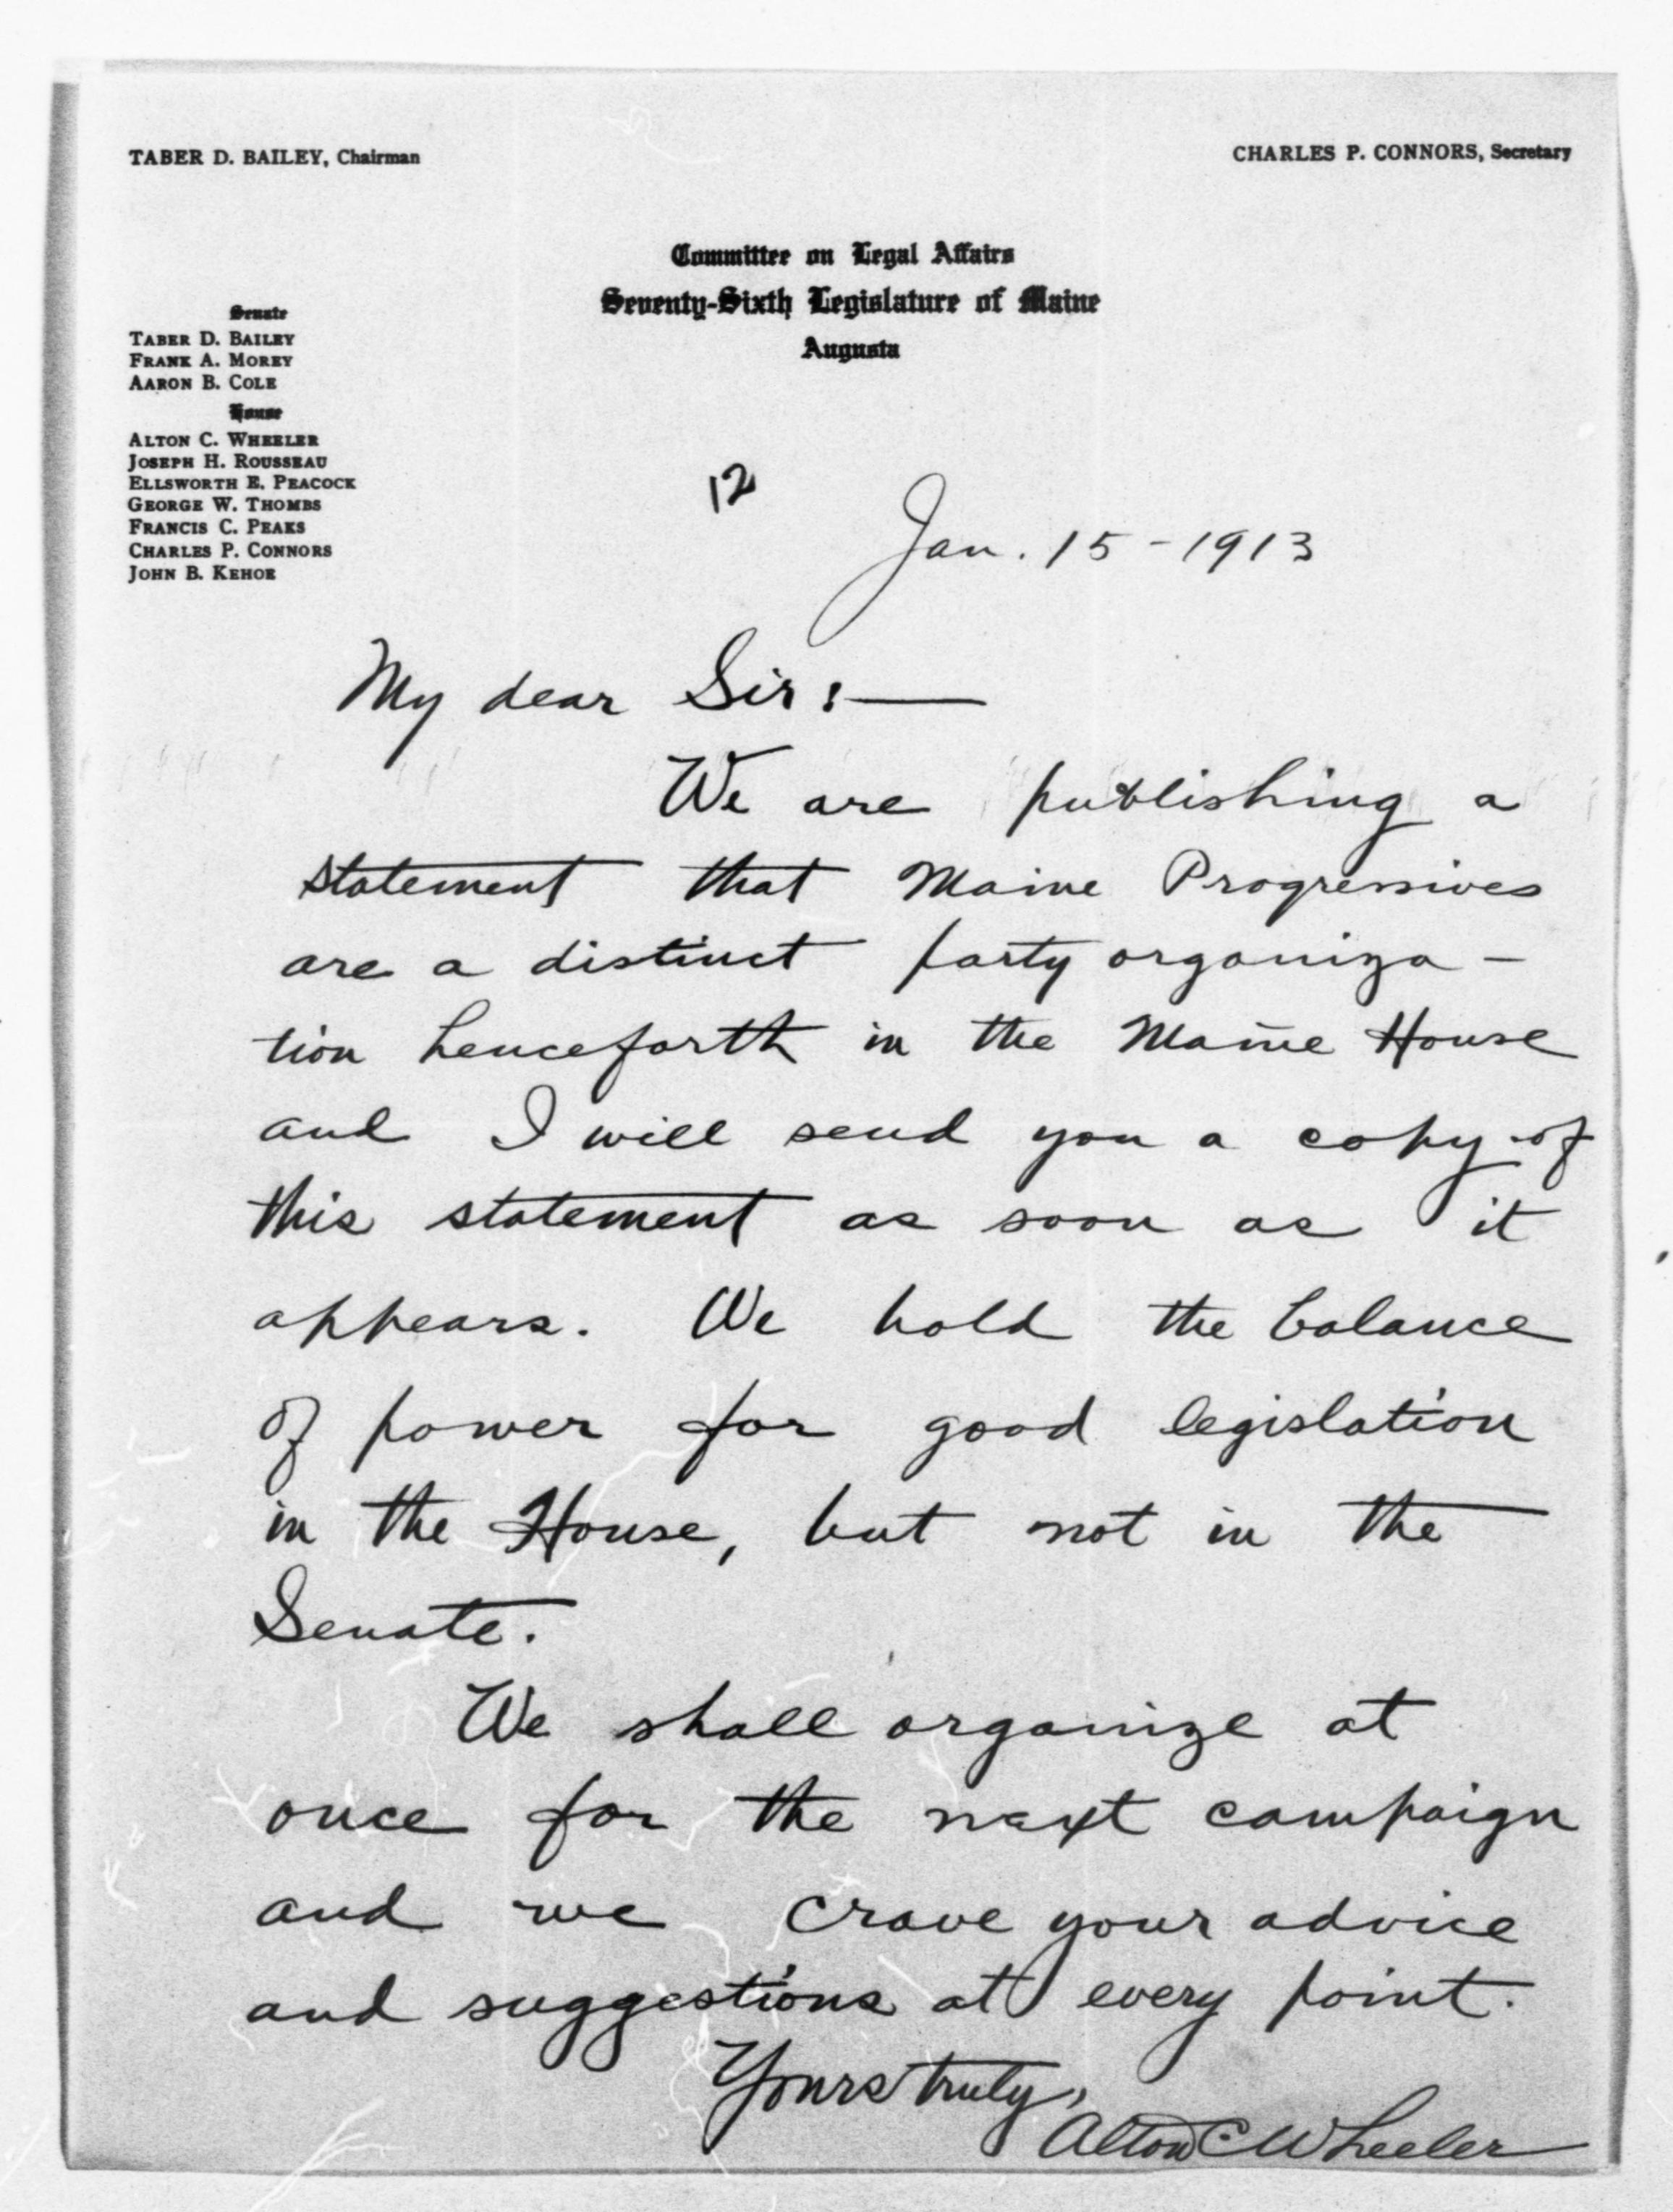 TABER D. BAILEY, Chairman
CHARLES P. CONNORS, Secretary
Committee on Legal Affairs
Seventy-Sixth Legislature of Maine
Augusta
Senate
TABER D. BAILEY
FRANK A. MOREY
AARON B. COLE
House
ALTON C. WHEELER
JOSEPH H. ROUSSEAU
ELLSWORTH E. PEACOCK
GEORGE W. THOMBS
FRANCIS C. PEAKS
CHARLES P. CONNORS
JOHN B. KEHOE
12
Jan. 15 - 1913
My dear Sir:—
We are publishing a
statement that Maine Progressives
are a distinct party organiza-
tion henceforth in the Maine House
and I will send you a copy of
this statement as soon as it
appears. We hold the balance
of power for good legislation
in the House, but not in the
Senate.
We shall organize at
once for the next campaign
and we crave your advice
and suggestions at every point.
Yours truly,
Alton C. Wheeler